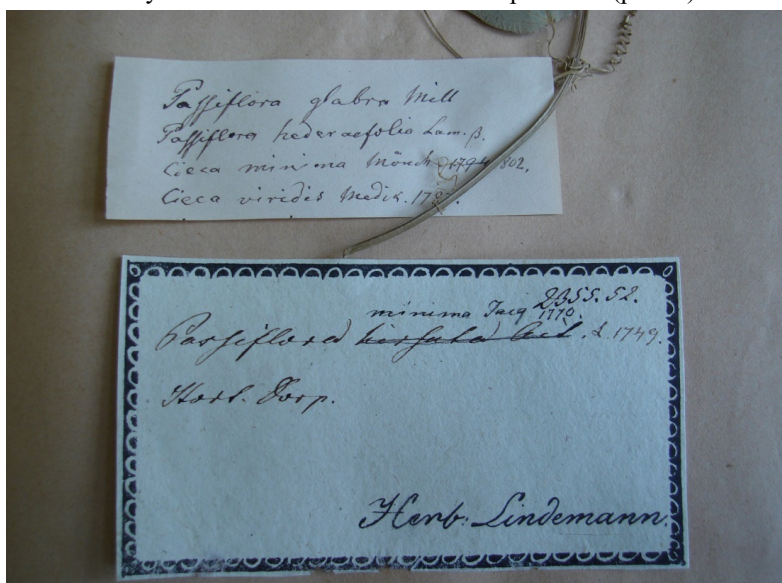 Passiflora glabra Mill
Passiflora hederaefolia Lam. β.
Cieca minima Mönch 1794 802.
Cieca viridis Medik. 1787.
2355.52.
minima Jacq 1770.
Passiflora hirsuta L. 1749.
Hort. Dorp.
Herb: Lindemann.